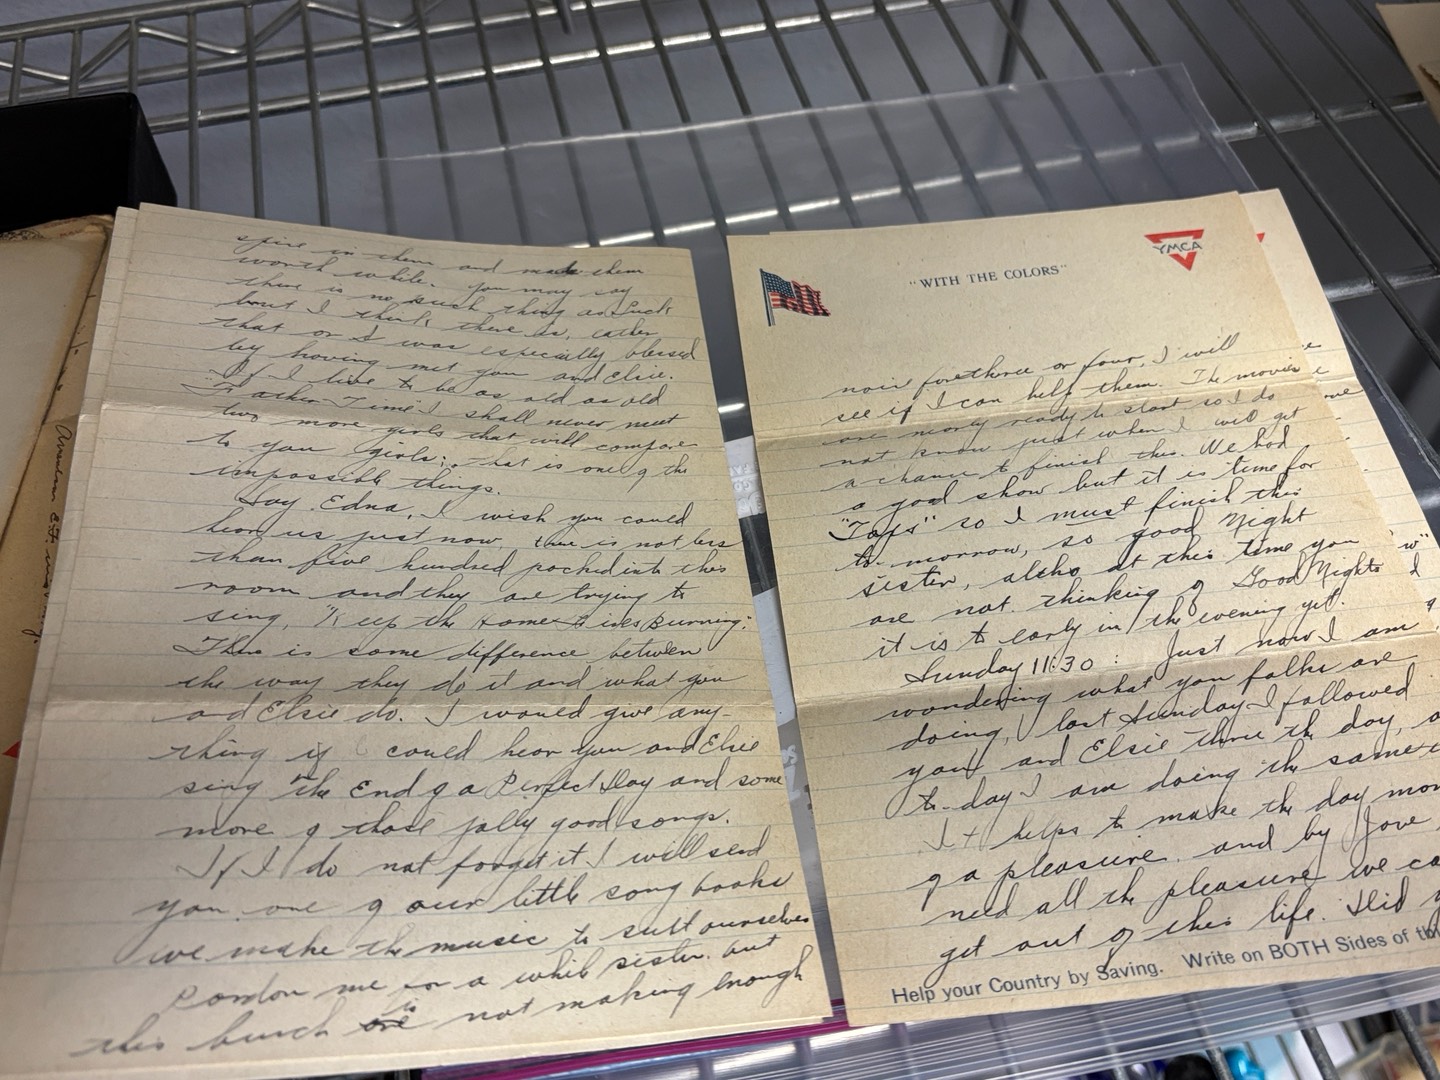 spire in them and made them
worth while. You may say
there is no such thing as Luck
but I think there is, either
that or I was especially blessed
by having met you and Elsie.
If I live to be as old as old
"Father Time" I shall never meet
two more girls that will compare
to you girls; that is one of the
impossible things.
Say Edna, I wish you could
hear us just now, there is not less
than five hundred packed into this
room and they are trying to
sing "Keep the Home Fires Burning".
There is some difference between
the way they do it and what you
and Elsie do. I would give any-
thing if I could hear you and Elsie
sing the End of a Perfect Day and some
more of those jolly good songs.
If I do not forget it I will send
you one of our little song books
we make the music to suit ourselves
Pardon me for a while sister, but
this bunch is not making enough
"WITH THE COLORS"
YMCA
noise for three or four, I will
see if I can help them. The movies
are nearly ready to start so I do
not know just when I will get
a chance to finish this. We had
a good show but it is time for
"Taps" so I must finish this
to-morrow, so good Night
sister, altho at this time you
are not thinking of Good Nights
it is to early in the evening yet.
Sunday 11:30: Just now I am
wondering what you folks are
doing, last Sunday I followed
you and Elsie thru the day,
to-day I am doing the same
It helps to make the day more
of a pleasure, and by Jove
need all the pleasure we
get out of this life. Did
Help your Country by Saving. Write on BOTH Sides of